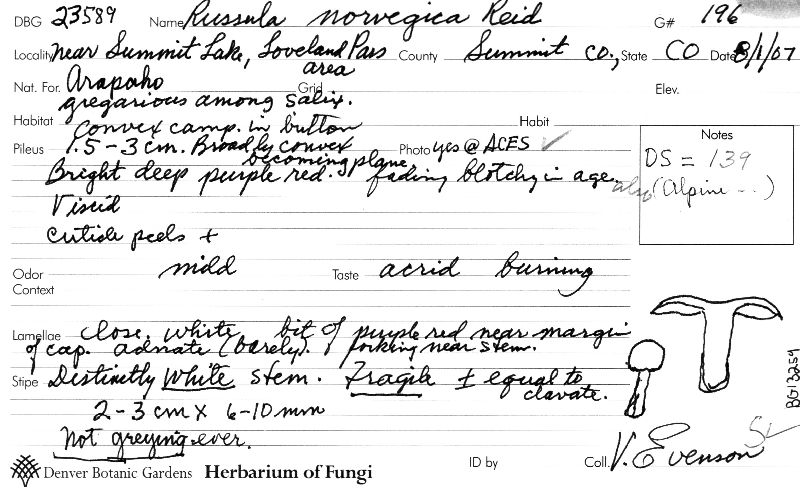 DBG 23589 Name Russula norvegica Reid G# 196
Locality near Summit Lake, Loveland Pass County Summit Co., State CO Date 8/1/07
area
Nat. For. Arapaho Grid Elev.
gregarious among Salix.
Habitat convex camp. in button Habit
Pileus 1.5 - 3 cm. Broadly convex Photo yes @ ACES ✓ Notes
becoming plane. DS = 139
Bright deep purple red. fading blotchy in age. also (Alpine - - )
Viscid
Cuticle peels +
Odor mild Taste acrid burning
Context
Lamellae close. white bit of purple red near margin
of cap. adnate (barely). forking near stem.
Stipe Distinctly White stem. Fragile ± equal to
clavate.
2 - 3 cm x 6-10 mm
Not greying ever.
Denver Botanic Gardens Herbarium of Fungi ID by Coll. V. Evenson
BG13259